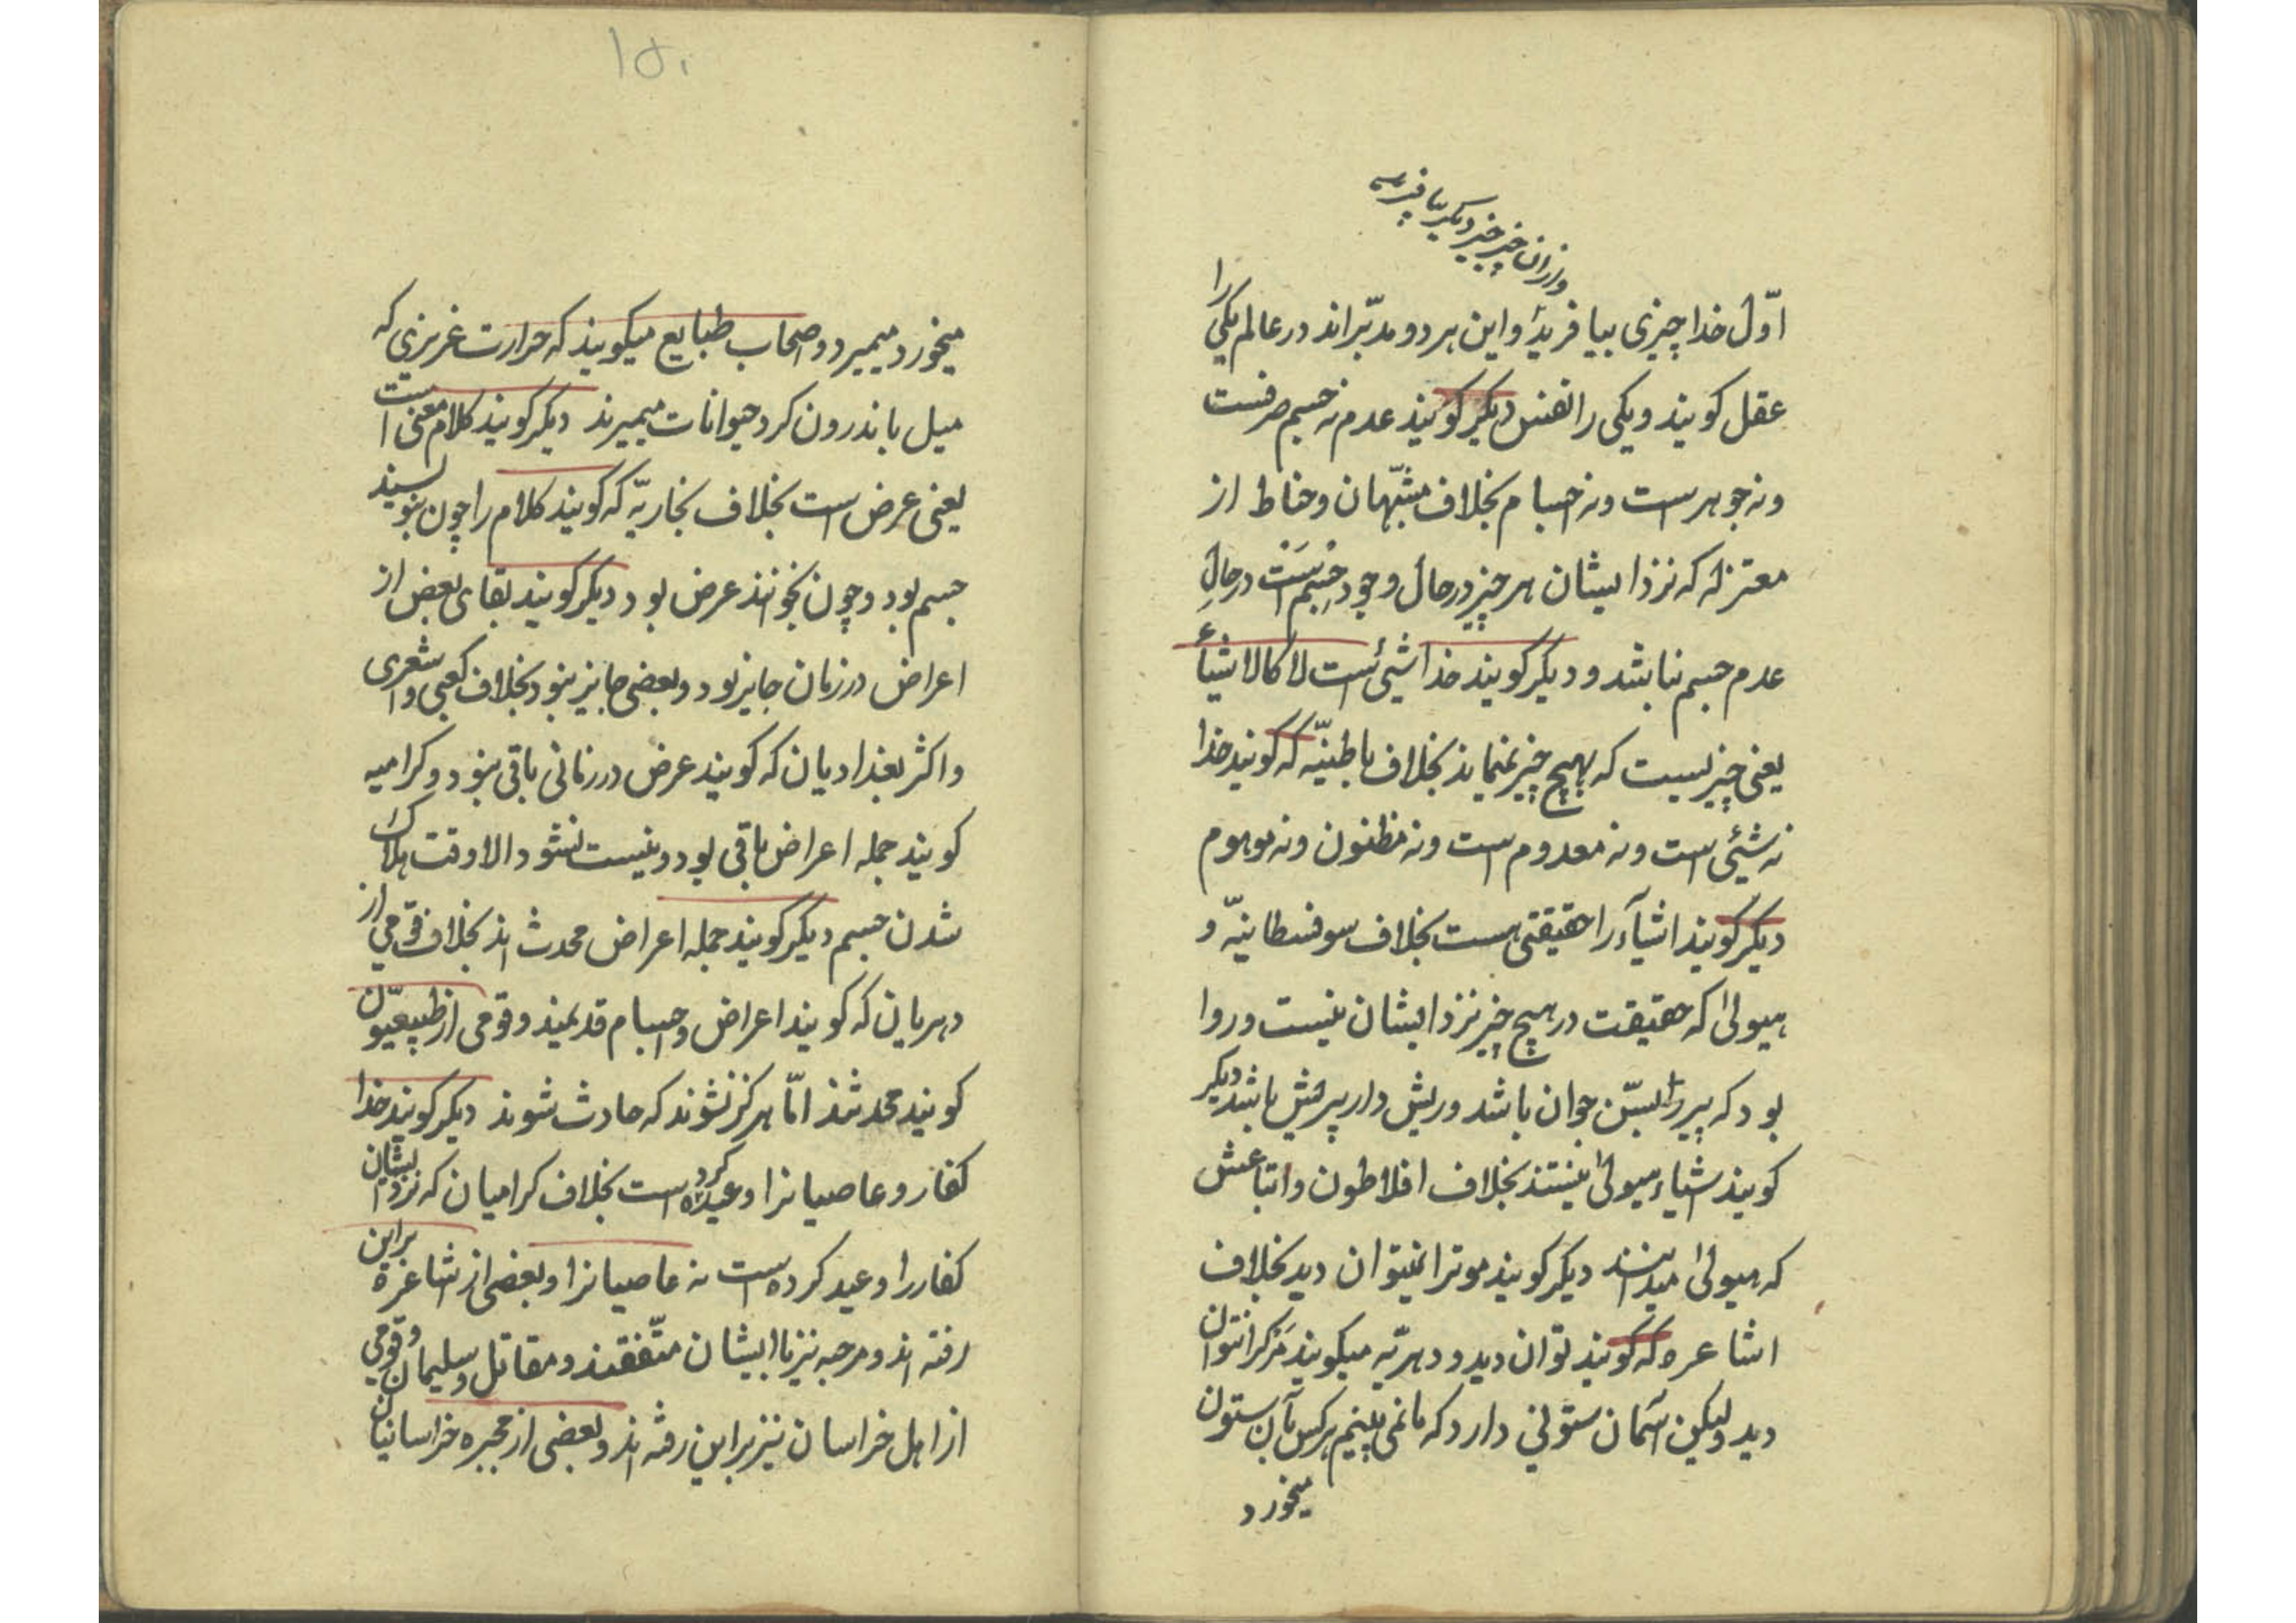 وازان چیز چیز دیکر بیافرید
اوّل خدا چیزی بیافرید و این هر دو مدبّراند در عالم یکی را
عقل کویند و یکی را نفس دیکر کویند عدم نه جسم صرفست
و نه جوهرست و نه اجسام بخلاف مشبّهان و خیاط از
معتزله که نزد ایشان هر چیز در حال وجود جسم است در حالِ
عدم جسم نباشد و دیکر کویند خدا شیئ است لا کالاشیأ
یعنی چیزیست که بهیچ چیز نماید بخلاف باطنیّه که کویند خدا
نه شیئی است و نه معدوم است و نه مظنون و نه موهوم
دیکر کویند اشیآء را حقیقتی هست بخلاف سوفسطائیّه و
هیولی که حقیقت در هیچ چیز نزد ایشان نیست و روا
بود که پیر زا بستن جوان باشد و ریش دار بیریش باشد دیکر
کویند اشیاء هیولی نیستند بخلاف افلاطون و اتباعش
که هیولی میدانند دیکر کویند موترا نمیتوان دید بخلاف
اشاعره که کویند توان دید و دهریّه میکویند مَرْکرا نتوان
دید ولیکن آسمان ستونی دارد که ما نمی بینیم هرکس بآن ستون
میخورد
۱۵۰
میخورد میمیرد و اصحاب طبایع میکویند که حرارت غریزی که
میل باندرون کرد حیوانات میمیرند دیکر کویند کلام معنی است
یعنی عرض است بخلاف نجاریّه که کویند کلام را چون بنویسند
جسم بود و چون بخوانند عرض بود دیکر کویند بقای بعض از
اعراض در زمان جایز بود و بعضی جایز نبود بخلاف کعبی و اشعری
و اکثر بغدادیان که کویند عرض در زمانی باقی نبود و کرامیه
کویند جمله اعراض باقی بود و نیست نشود الا وقت هلاک
شدن جسم دیکر کویند جمله اعراض محدث اند بخلاف قومی از
دهریان که کویند اعراض و اجسام قدیمند و قومی از طبیعیّون
کویند محدثند امّا هرکز نشوند که حادث شوند دیکر کویند خدا
کفار و عاصیانرا وعید کرده است بخلاف کرامیان که نزد ایشان
کفار را وعید کرده است نه عاصیانرا و بعضی از اشاعره براین
رفته اند و مرجیه نیز با ایشان متّفقند و مقاتل و سلیمان و قومی
از اهل خراسان نیز براین رفته اند و بعضی از مجبره خراسانیان